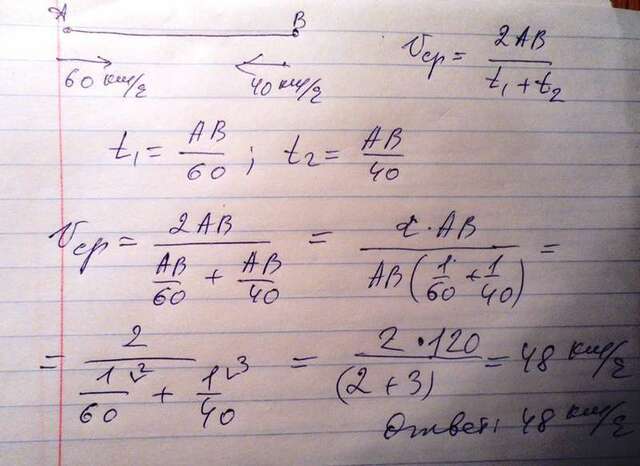 A B
60 км/ч 40 км/ч
Vср = 2AB / (t₁ + t₂)
t₁ = AB/60 ; t₂ = AB/40
Vср = 2AB / (AB/60 + AB/40) = 2·AB / (AB(1/60 + 1/40)) =
= 2 / (1^2/60 + 1^3/40) = 2·120 / (2+3) = 48 км/ч
Ответ: 48 км/ч